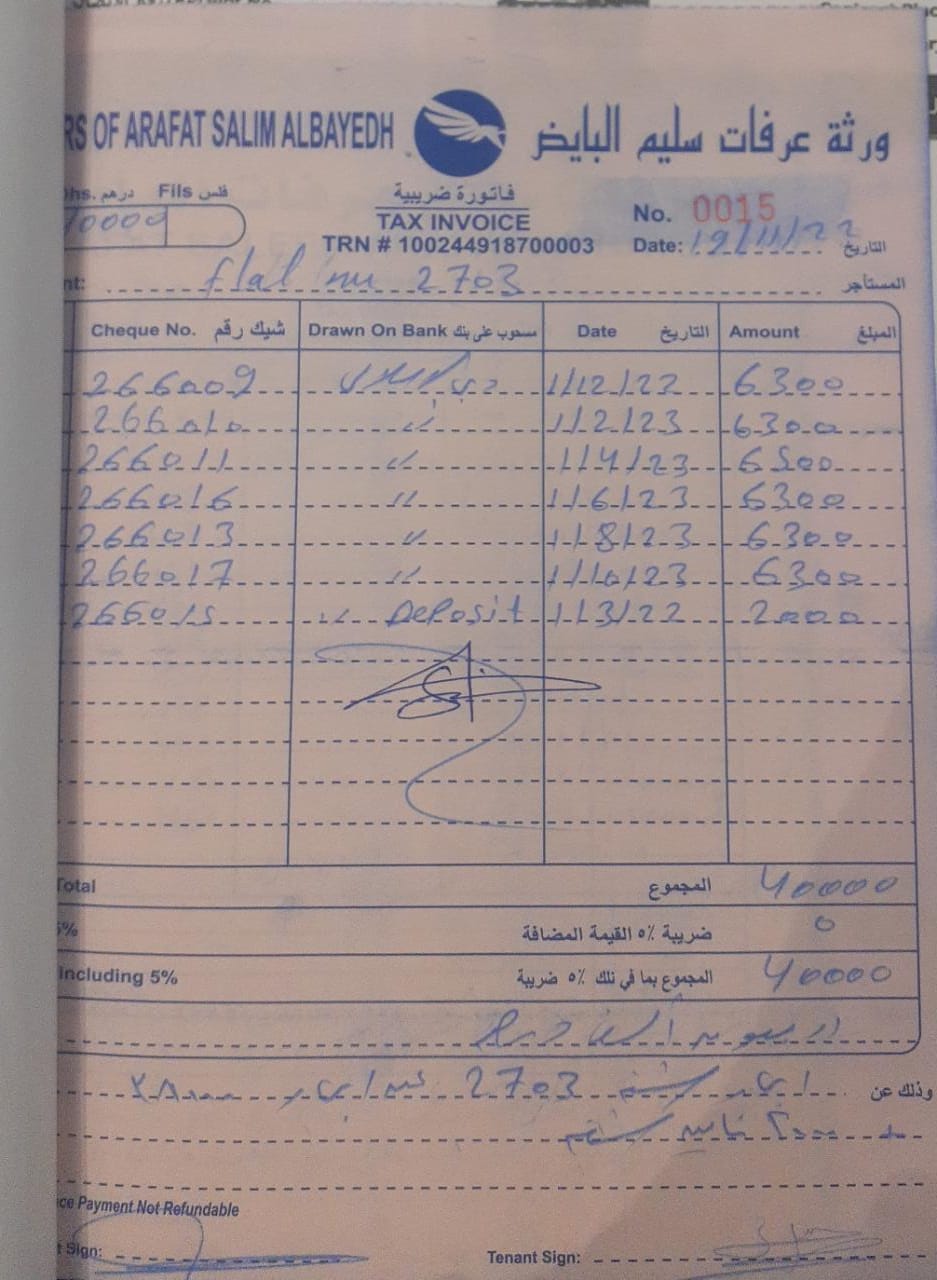 RS OF ARAFAT SALIM ALBAYEDH ورثة عرفات سليم البايض
hs. درهم Fils فلس
فاتورة ضريبية
TAX INVOICE
No. 0015
TRN # 100244918700003
Date: 19/11/22 التاريخ
nt: flat nu 2703 المستأجر
Cheque No. شيك رقم Drawn On Bank مسحوب على بنك Date التاريخ Amount المبلغ
266009 دبي الاسلامي 1/12/22 6300
266010 " 1/2/23 6300
266011 " 1/4/23 6300
266016 " 1/6/23 6300
266013 " 1/8/23 6300
266017 " 1/10/23 6300
266015 " Deposit 1/3/22 2000
Total المجموع 40000
5% ضريبة ٥٪ القيمة المضافة 0
Including 5% المجموع بما في تلك ٥٪ ضريبة 40000
اربعون الف درهم
وذلك عن 2703
٢٠٠٠ تامين
ce Payment Not Refundable
t Sign: Tenant Sign: